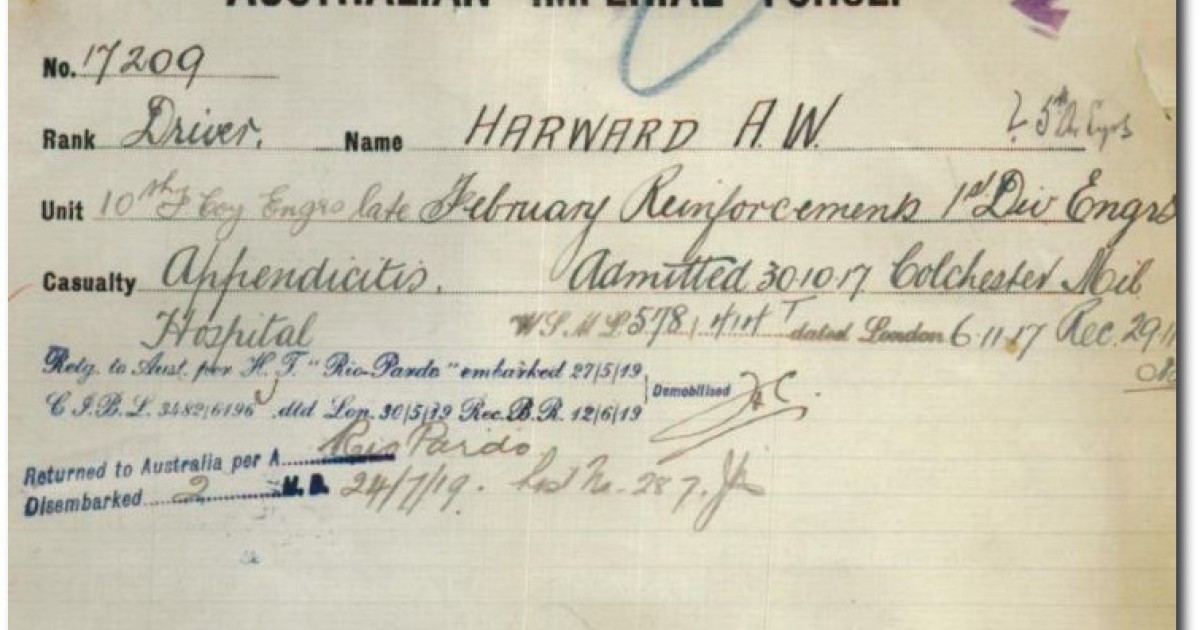 AUSTRALIAN IMPERIAL FORCE.
No. 17209
Rank Driver. Name HARWARD A.W. 5th
Unit 10th F Coy Engrs late February Reinforcements 1st Div Engrs
Casualty Appendicitis. Admitted 30 10 17 Colchester Mil
Hospital 578 dated London 6-11-17 Rec. 29
Retg. to Aust. per H. T. "Rio-Pardo" embarked 27/5/19
C I.B.L. 3482/6196 dtd Lon. 30/5/19 Rec. B.R. 12/6/19 Demobilised
Returned to Australia per A Rio Pardo
Disembarked 2 M. D. 24/7/19. List No. 287.